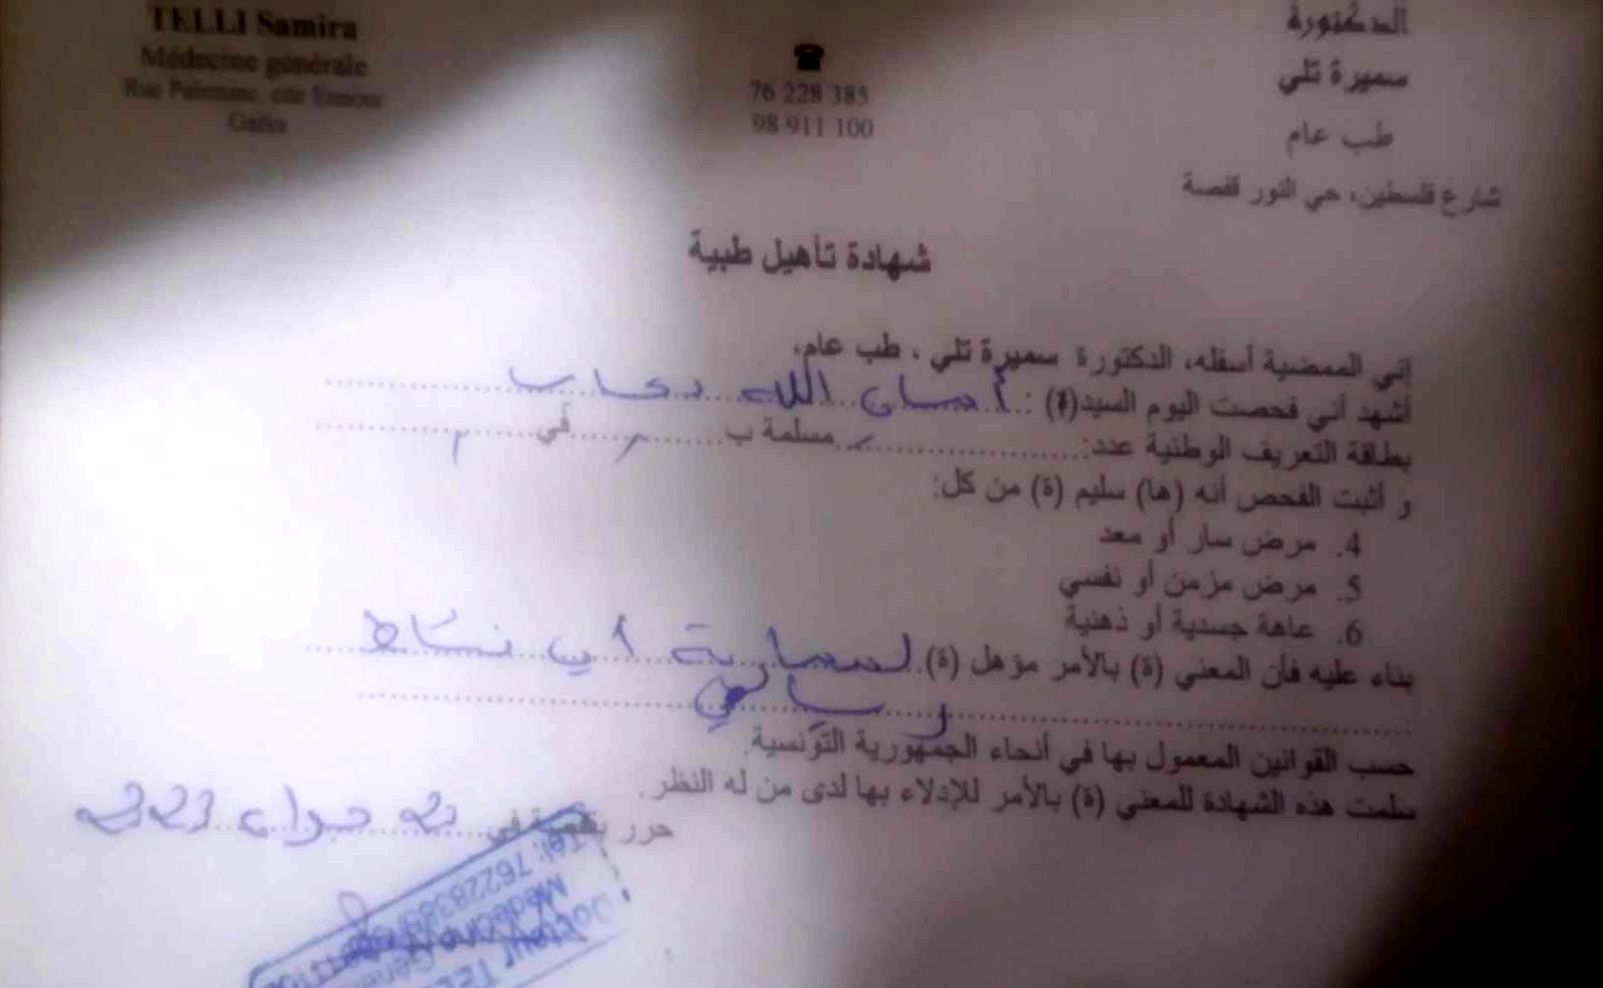 TELLI Samira
Médecine générale
Rue Palestine, cité Ennour
Gafsa
76 228 385
98 911 100
الدكتورة
سميرة تلي
طب عام
شارع فلسطين، حي النور قفصة
شهادة تأهيل طبية
إني الممضية أسفله، الدكتورة سميرة تلي ، طب عام،
أشهد أني فحصت اليوم السيد(ة) : أمان الله
بطاقة التعريف الوطنية عدد: مسلمة ب في
و أثبت الفحص أنه (ها) سليم (ة) من كل:
4. مرض سار أو معد
5. مرض مزمن أو نفسي
6. عاهة جسدية أو ذهنية
بناء عليه فأن المعني (ة) بالأمر مؤهل (ة) لممارسة أي نشاط
رياضي
حسب القوانين المعمول بها في أنحاء الجمهورية التونسية.
سلمت هذه الشهادة للمعني (ة) بالأمر للإدلاء بها لدى من له النظر.
حرر بقفصة في
Docteur TELLI
Médecine Géné
Tel: 76228385